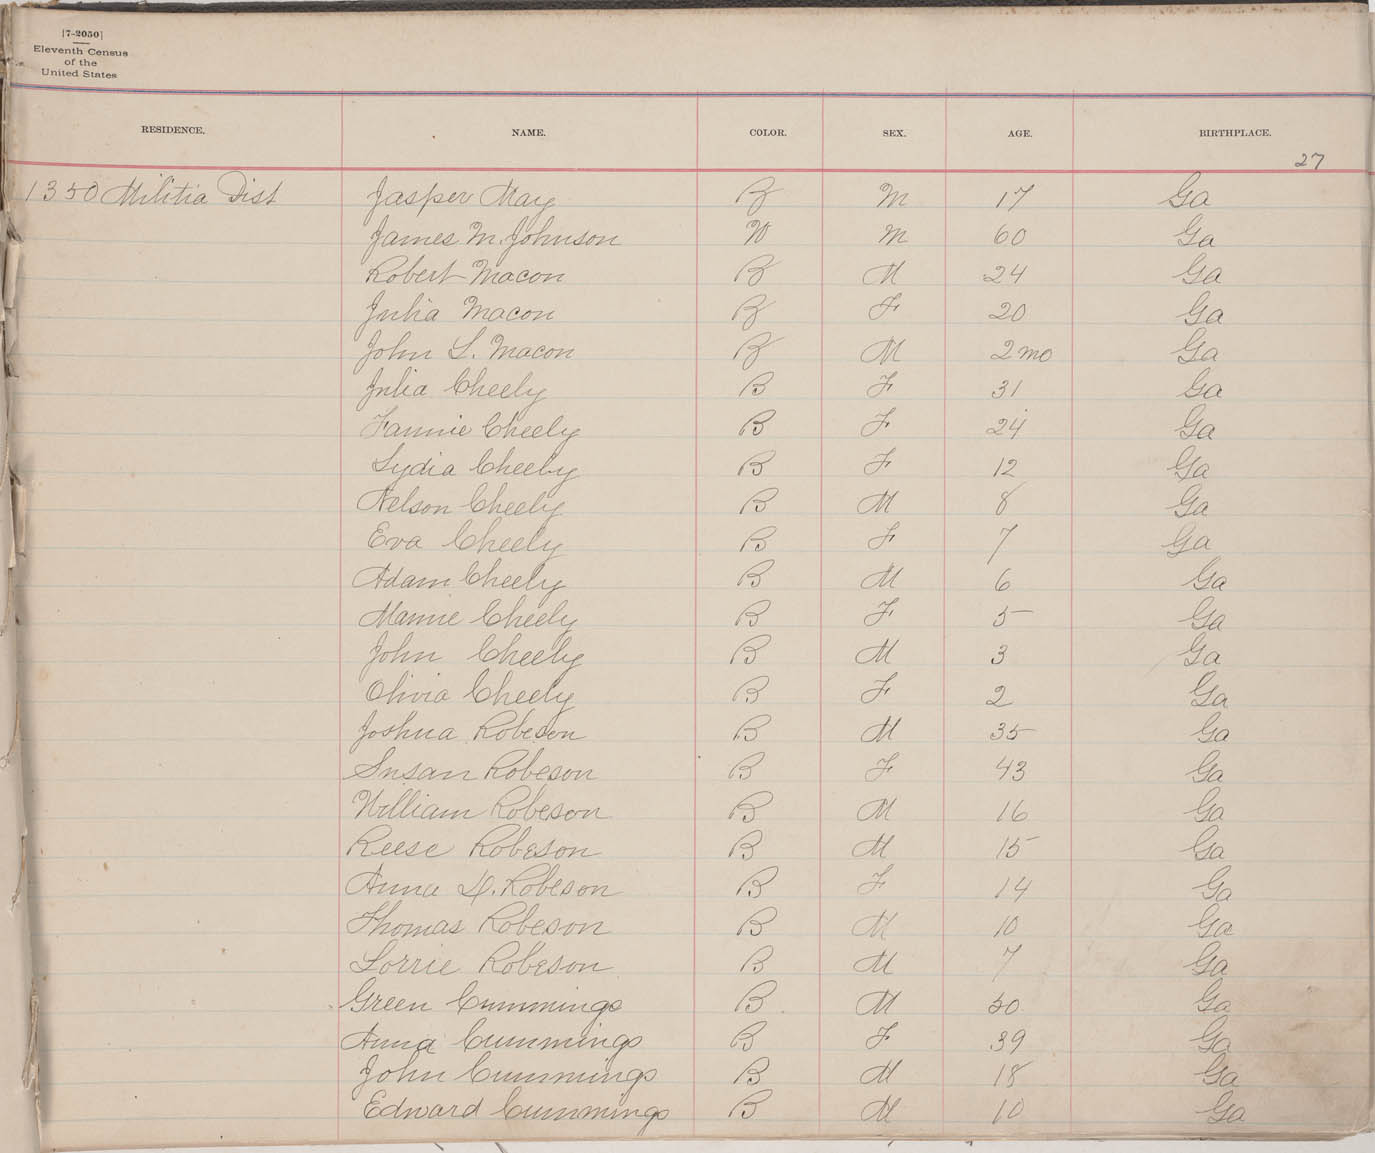 [7-2050]
Eleventh Census
of the
United States
RESIDENCE. NAME. COLOR. SEX. AGE. BIRTHPLACE.
27
1350 Militia Dist Jasper May B M 17 Ga
James M. Johnson W M 60 Ga
Robert Macon B M 24 Ga
Julia Macon B F 20 Ga
John L. Macon B M 2 mo Ga
Julia Cheely B F 31 Ga
Fannie Cheely B F 24 Ga
Lydia Cheely B F 12 Ga
Nelson Cheely B M 8 Ga
Eva Cheely B F 7 Ga
Adam Cheely B M 6 Ga
Mamie Cheely B F 5 Ga
John Cheely B M 3 Ga
Olivia Cheely B F 2 Ga
Joshua Robeson B M 35 Ga
Susan Robeson B F 43 Ga
William Robeson B M 16 Ga
Reese Robeson B M 15 Ga
Anna D. Robeson B F 14 Ga
Thomas Robeson B M 10 Ga
Lorrie Robeson B M 7 Ga
Green Cummings B M 50 Ga
Anna Cummings B F 39 Ga
John Cummings B M 18 Ga
Edward Cummings B M 10 Ga